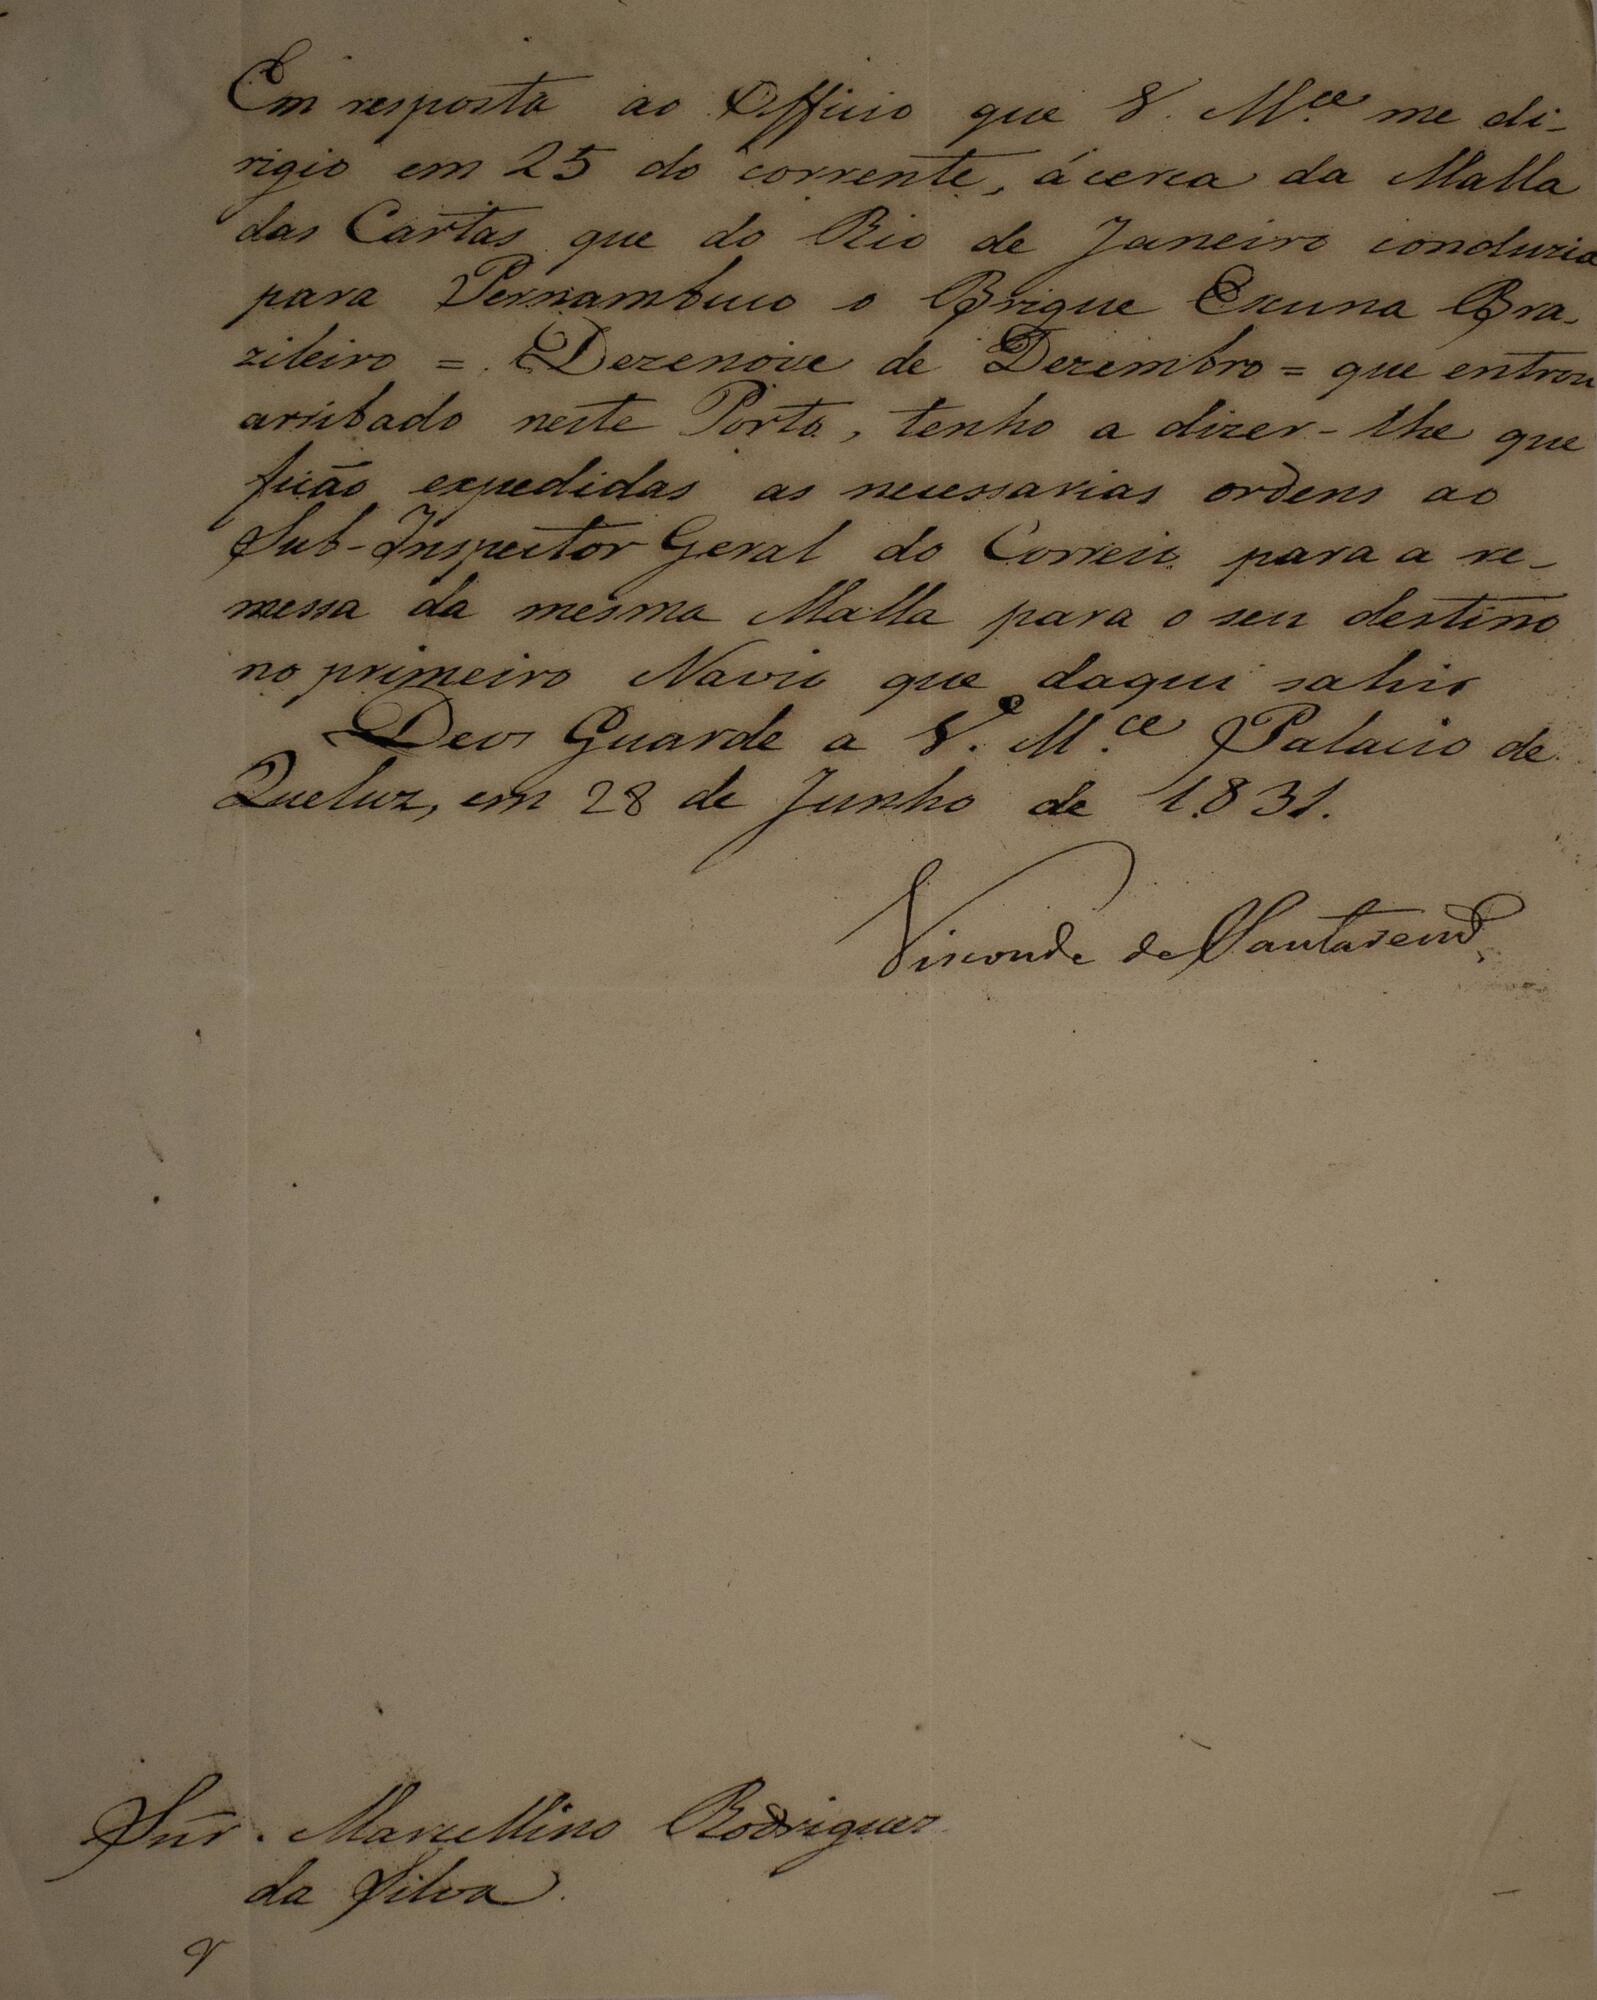 Em resposta ao Officio que V. M.ce me di-
rigio em 25 do corrente, ácerca da Malla
das Cartas que do Rio de Janeiro conduzia
para Pernambuco o Brigue Escuna Bra-
zileiro = Dezenove de Dezembro = que entrou
arribado neste Porto, tenho a dizer-lhe que
ficão expedidas as necessarias ordens ao
Sub-Inspector Geral do Correio para a re-
messa da mesma Malla para o seu destino
no primeiro Navio que daqui sahir
Deos Guarde a V. M.ce Palacio de
Queluz, em 28 de Junho de 1831.
Visconde de Santarem
Snr. Marcellino Rodrigues
da Silva.